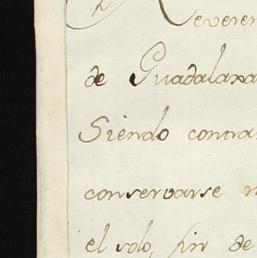 Reveren
de Guadalaxa
Siendo contra
conservarse
el solo, fin de